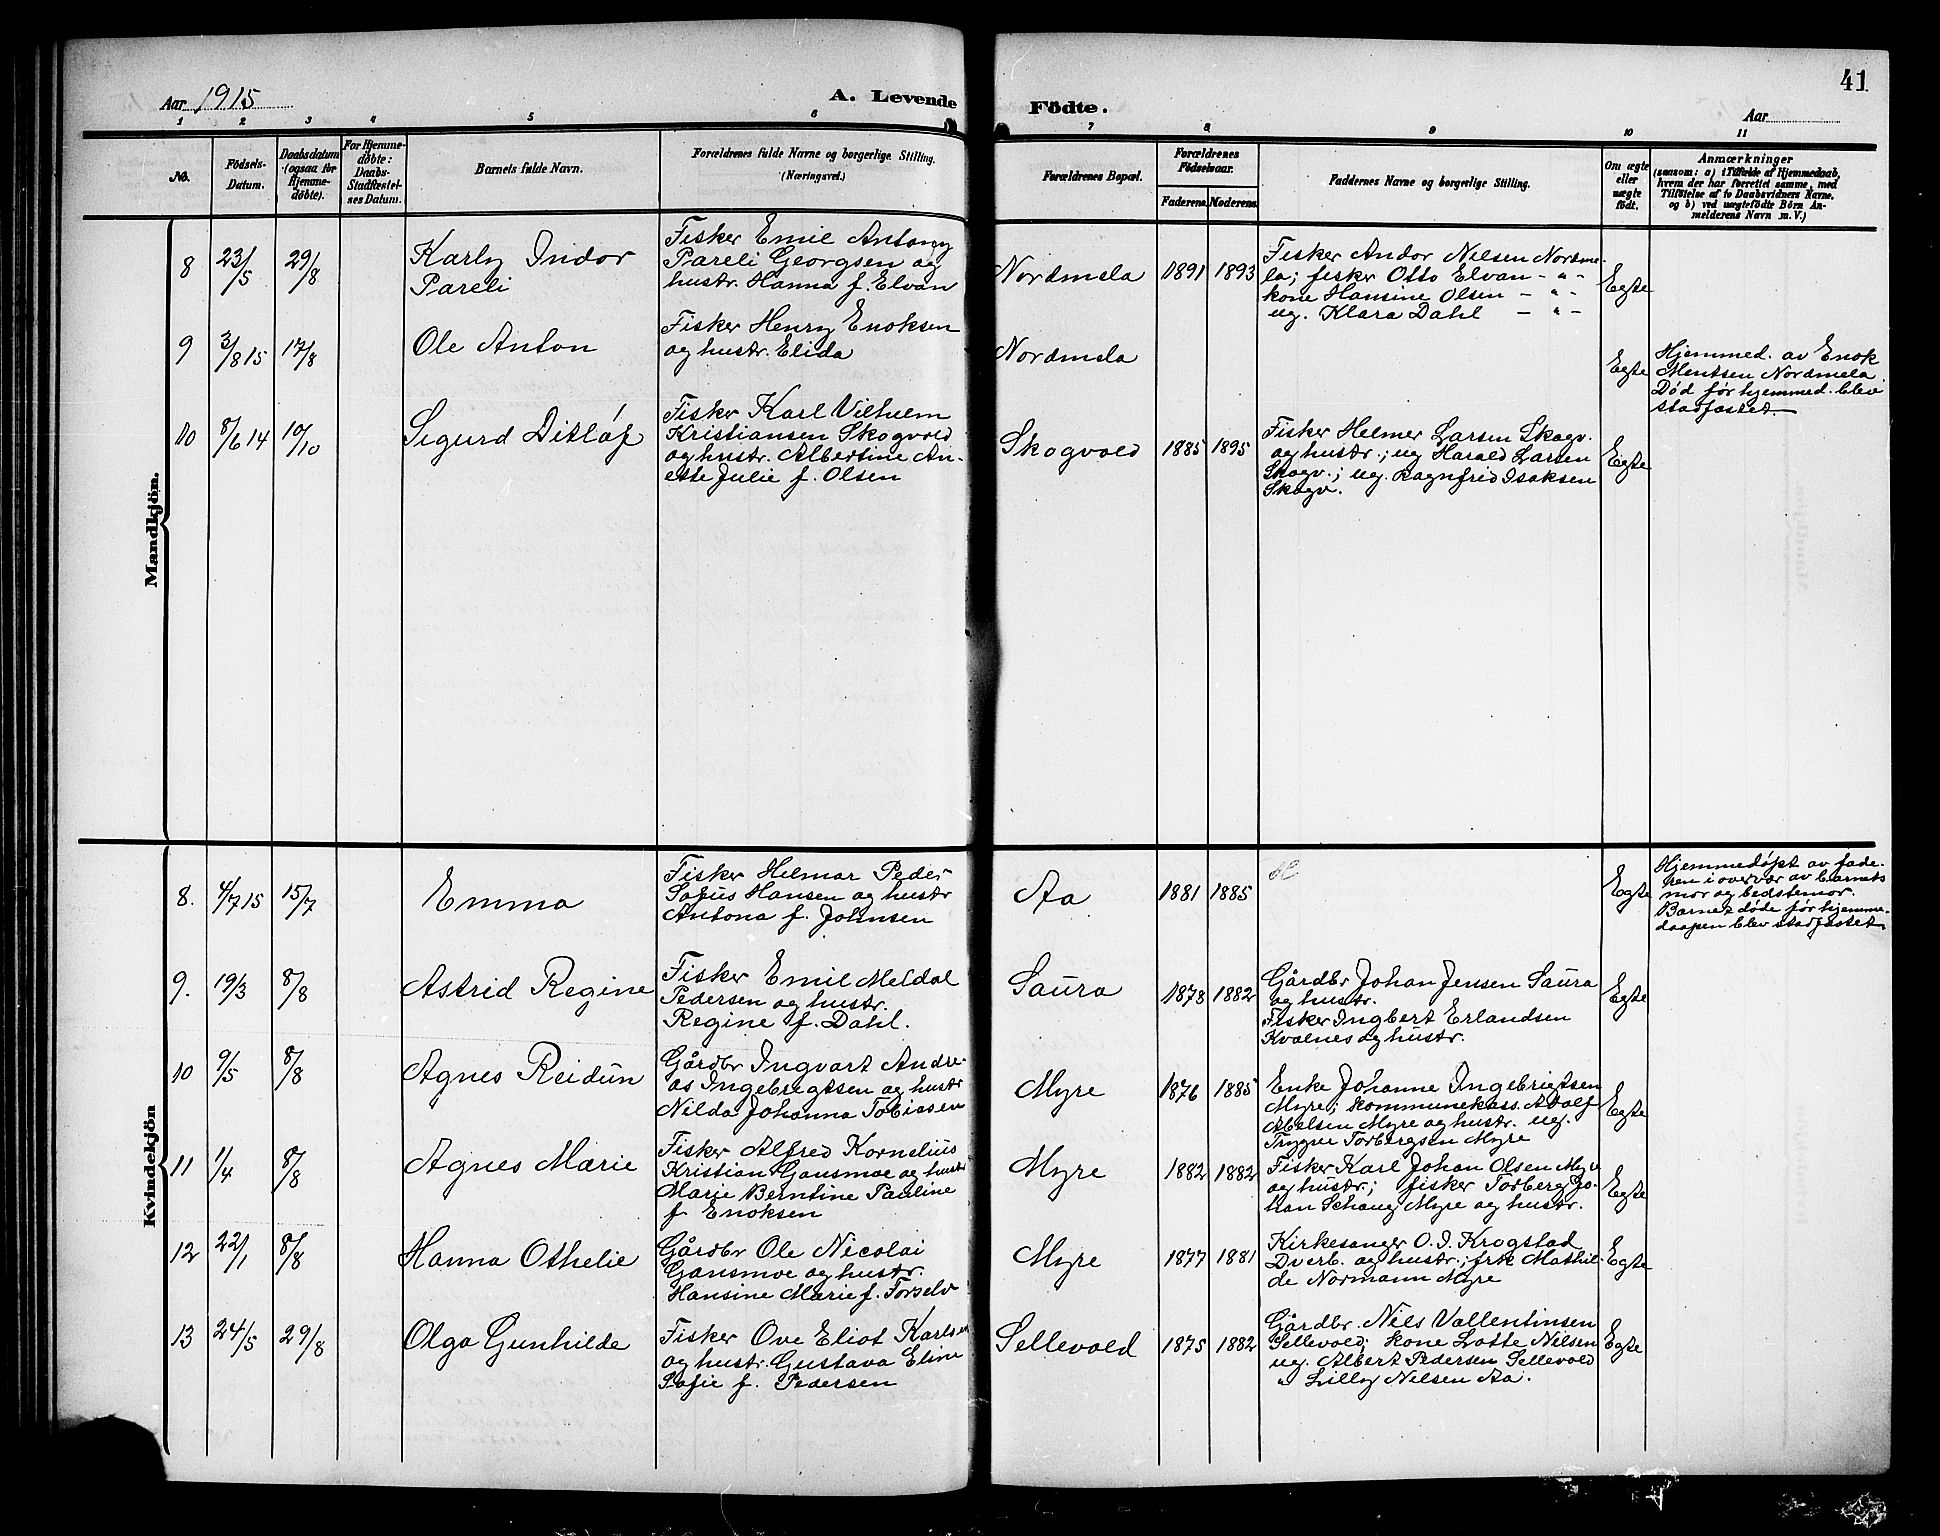 41
Aar 1915
A. Levende
Födte.
Aar
1 2 3 4 5 6 7 8 9 10 11
No.
Födsels-
Datum.
Daabsdatum
(ogsaa for
Hjemme-
döbte).
For Hjemme-
döbte:
Daabs-
Stadfæstel-
ses Datum.
Barnets fulde Navn.
Forældrenes fulde Navne og borgerlige Stilling.
(Næringsvei.)
Forældrenes Bopæl.
Forældrenes
Födselsaar.
Faderens.
Moderens.
Faddernes Navne og borgerlige Stilling.
Om ægte
eller
uægte
födt.
Anmærkninger
(saasom: a) i Tilfælde af Hjemmedaab,
hvem der har forrettet samme, med
Tilföielse af to Daabsvidners Navne,
og b) ved uægtefödte Börn An-
melderens Navn m. V.)
Mandkjön.
8
23/5
29/8
Karly Indor
Pareli
Fisker Emil Antony
Pareli Georgsen og
hustr. Hanna f. Elvan
Nordmela
1891
1893
Fisker Andor Nilsen Nordme-
la; fisker Otto Elvan - " -
kone Hansine Olsen - " -
ug. Klara Dahl - " -
Egte
9
3/8 15
17/8
Ole Anton
Fisker Henry Enoksen
og hustr. Elida
Nordmela
Egte
Hjemmed. av Enok
Mentsen Nordmela
Død før hjemmed. blev
stadfæstet.
10
8/6 14
10/10
Sigurd Ditløf
Fisker Karl Vilhelm
Kristiansen Skogvold
og hustr. Albertine An-
ette Julie f. Olsen
Skogvold
1885
1895
Fisker Helmer Larsen Skogv.
og hustr.; ug Harald Larsen
Skogv.; ug. Ragnfrid Isaksen
Skogv.
Egte
Kvindekjön
8.
4/7 15
15/7
Emma
Fisker Helmar Peder
Sofus Hansen og hustr
Antona f. Johnsen
Aa
1881
1885
Egte
Hjemmedøpt av fade-
ren i overvær av barnets
mor og bedstemor.
Barnet døde før hjemme-
daapen blev stadfæstet.
9.
19/3
8/8
Astrid Regine
Fisker Emil Meldal
Pedersen og hustr.
Regine f. Dahl.
Saura
1878
1882
Gårdbr Johan Jensen Saura
og hustr.
Fisker Ingbert Erlandsen
Kvalnes og hustr.
Egte
10
9/5
8/8
Agnes Reidun
Gårdbr Ingvart Andre-
as Ingebregtsen og hustr
Nilda Johanna Tobiasen
Myre
1876
1885
Enke Johanne Ingebrigtsen
Myre; kommunekass. Adolf
Abelsen Myre og hustr. ug.
Trygve Torbergsen Myre
Egte
11
1/4
8/8
Agnes Marie
Fisker Alfred Kornelius
Kristian Gansmoe og hustr
Marie Berntine Pauline
f. Enoksen
Myre
1882
1882
Fisker Karl Johan Olsen Myr
og hustr; fisker Torberg Jo-
han Schang Myre og hustr.
Egte
12
22/1
8/8
Hanna Othelie
Gårdbr Ole Nicolai
Gansmoe og hustr.
Hansine Marie f. Forselv
Myre
1877
1881
Kirkesanger O. J. Krogstad
Dverb. og hustr.; frk Mathil-
de Normann Myre
Egte
13
24/5
29/8
Olga Gunhilde
Fisker Ove Eliot Karlsen
og hustr. Gustava Eline
Sofie f. Pedersen
Sellevold
1875
1882
Gårdbr. Nils Vallentinsen
Sellevold; kone Lotte Nilsen
ug. Albert Pedersen Sellevold
" Lilly Nilsen Aa.
Egte